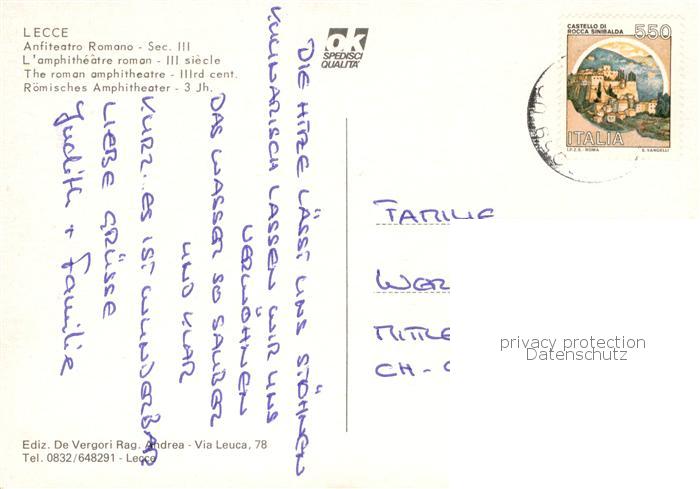 LECCE
Anfiteatro Romano - Sec. III
L'amphithéâtre roman - III siècle
The roman amphitheatre - IIIrd cent.
Römisches Amphitheater - 3 Jh.
ok
SPEDISCI
QUALITA'
CASTELLO DI
ROCCA SINIBALDA
550
ITALIA
I.P.Z.S. - ROMA
E. VANGELLI
DIE HITZE LÄSST UNS STÖHNEN
KULINARISCH LASSEN WIR UNS
VERWÖHNEN
DAS WASSER SO SAUBER
UND KLAR
KURZ.. ES IST WUNDERBAR
LIEBE GRÜSSE
Judith + Familie
FAMILIE
WER
MITTLE
CH -
privacy protection
Datenschutz
Ediz. De Vergori Rag. Andrea - Via Leuca, 78
Tel. 0832/648291 - Lecce